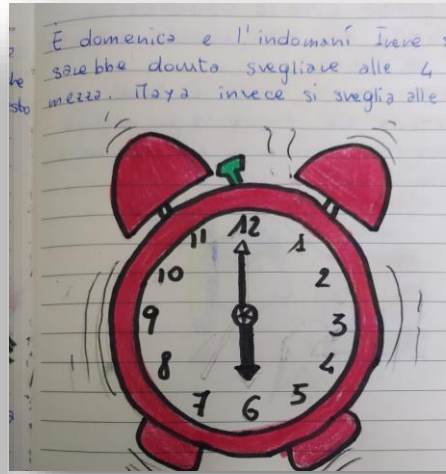 È domenica e l'indomani Irene s
sarebbe dovuta svegliare alle 4
mezza. Maya invece si sveglia alle
he
sto
12
11
1
10
2
9
3
8
4
7
5
6